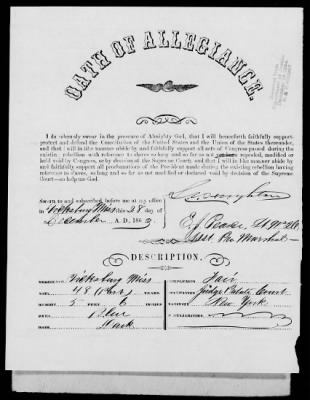 OATH OF ALLEGIANCE.
I do solemnly swear in the presence of Almighty God, that I will henceforth faithfully support,
protect and defend the Constitution of the United States and the Union of the States thereunder,
and that I will in like manner abide by and faithfully support all acts of Congress passed during the
existing rebellion with reference to slaves so long and so far as not repealed, modified or
held void by Congress, or by decision of the Supreme Court; and that I will in like manner abide by
and faithfully support all proclamations of the President made during the existing rebellion having
reference to slaves, so long and so far as not modified or declared void by decision of the Supreme
Court—so help me God.
Sworn to and subscribed before me at my office
in Vicksburg Miss this 28 day of
December A. D., 1863
Asst Pro Marshal
DESCRIPTION.
Vicksburg Miss
COMPLEXION, Fair
AGE, 48 YEARS.
OCCUPATION, Judge Probate Court
HEIGHT, 5 FEET 6 INCHES.
NATIVITY, New York
EYES, Blue
HAIR, Dark